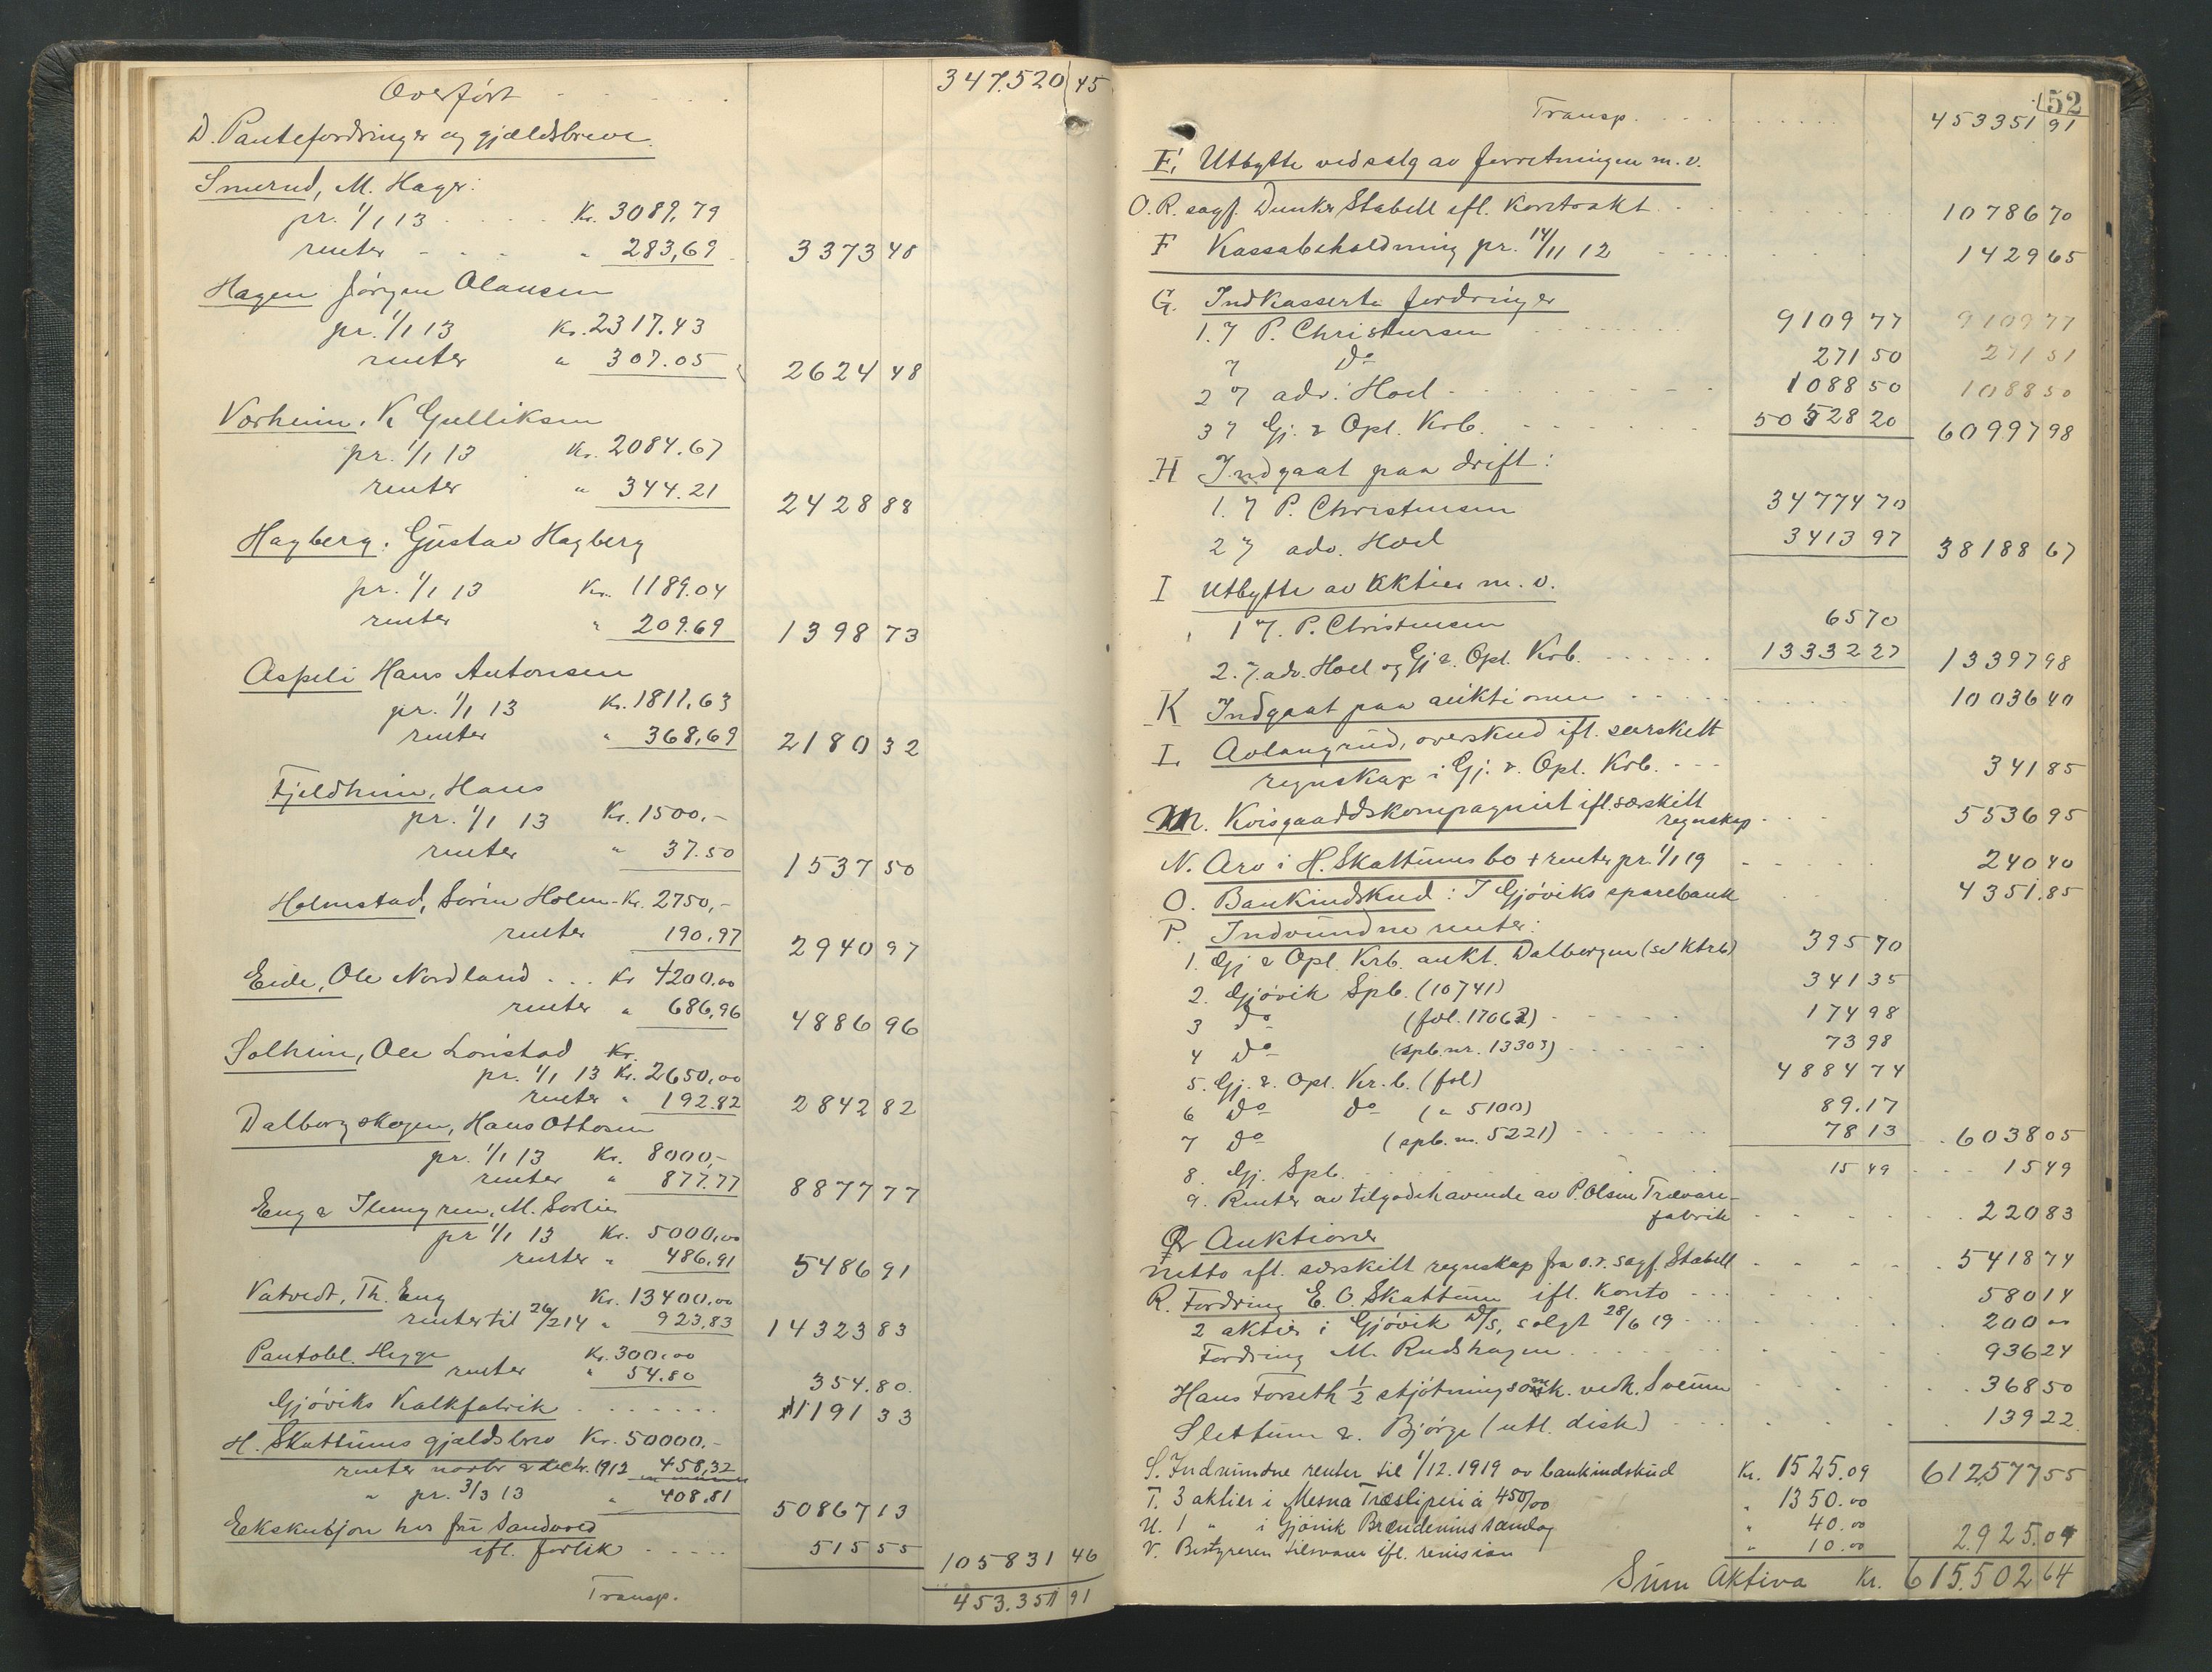 Overført 347.520 45
D. Pantefordringer og gjældsbreve.
Smerud, M. Hager:
pr. 1/1 13 Kr. 3089,79
renter " 283,69 3373 48
Hagen Jörgen Olausen
pr. 1/1 13 Kr. 2317.43
renter " 307.05 2624 48
Vorheim. K Gulliksen
pr. 1/1 13 Kr. 2084.67
renter " 344.21 2428 88
Hagberg. Gustav Hagberg
pr. 1/1 13 Kr. 1189.04
renter " 209.69 1398 73
Aspeli Hans Antonsen
pr. 1/1 13 Kr. 1811,63
renter " 368,69 2180 32
Fjeldheim, Hans
pr. 1/1 13 Kr. 1500,-
renter " 37.50 1537 50
Holmstad, Sörin Holm - Kr. 2750,-
renter 190,97 2940 97
Eide, Ole Nordland ... Kr 4200,00
renter " 686,96 4886 96
Solheim, Ole Lonstad Kr.
pr. 1/1 13 Kr. 2650,00
renter " 192.82 2842 82
Dalborgskogen, Hans Ottosen
pr. 1/1 13 Kr. 8000,-
renter " 877.77 8877 77
Eng & Ilmyren, M. Sørlie
pr 1/1 13 Kr. 5000,00
renter " 486,91 5486 91
Vatvedt, Th. Eng Kr. 13400,00
renter til 26/2 14 " 923,83 14323 83
Pantobl. Hegge Kr. 300,00
renter " 54.80 354.80.
Gjöviks Kalkfabrik 1191 33
H. Skattums gjældsbrev Kr. 50000,-
renter novbr & decbr. 1912 458,32
" pr. 3/3 13 " 408.81 50867 13
Ekskutjon hos fru Sandvold
ifl. forlik 515 55 105831 46
Transp. 453.351 91
52
Transp. 453351 91
E, Utbytte ved salg av forretningen m. v.
O. R. sagf. Dunker Stabell ifl. Kontrakt 10786 70
F Kassabeholdning pr. 14/11 12 1429 65
G. Indkasserte fordringer
1. 7 P. Christensen 9109 77 9109 77
7 do 271 50 271 51
2 7 adv. Hoel 1088 50 1088 50
3 7 Gj. & Opl. Krb. 50528 20 60997 98
H Indgaat paa drift:
1. 7 P. Christensen 34774 70
2 7 adv. Hoel 3413 97 38188 67
I Utbytte av Aktier m. v.
1 7. P. Christensen 65 70
2. 7. adv. Hoel og Gj &. Opl. Krb. 13332 27 13397 98
K Indgaat paa auktionen 10036 40
L Avlangrud, overskud ifl. særskilt
regnskap i Gj. &. Opl. Krb. 341 85
M. Kvisgaardskompagniet ifl. særskilt
regnskap 5536 95
N. Arv i H. Skattums bo + renter pr. 1/1 19 240 40
O. Bankindskud: I Gjöviks sparebank 4351.85
P. Indvundne renter:
1. Gj & Opl. Krb. aukt. Dalborgen (sd Ktrb) 395 70
2. Gjövik Spb. (10741) 341 35
3 do (fol. 17062) 174 98
4 do (spb. nr. 13303) 73 98
5. Gj. &. Opl. Kr. b. (fol) 4884 74
6 do do (" 5100) 89.17
7 do (spb. nr. 5221) 78 13 6038 05
8. Gj. Spb. 15 49 15 49
9. Renter av tilgodehavende av P. Olsen Trævare-
fabrik 220 83
Q Auktioner
netto ifl. særskilt regnskap fra o. r. sagf. Stabell 5418 74
R. Fordring E. O. Skattum ifl. Konto 580 14
2 aktier i Gjövik D/S, solgt 28/6 19 200 00
Fordring M. Rudshagen 936 24
Hans Forseth 1/2 skjötningsomk. vedk. Sveum 368 50
Slettum &. Björge (utl. disk) 139 22
S. Indvundne renter til 1/12. 1919 av bankindskud Kr. 1525.09 612577 55
T. 3 aktier i Mesna Træsliperi à 450/00 " 1350.00
U. 1 " i Gjövik Brændevinssamlag " 40.00
V. Bestyreren tilsvarer ifl. revision " 10.00 2.925.09
Sum Aktiva Kr. 615.502 64